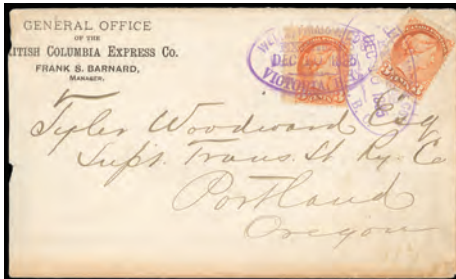 GENERAL OFFICE
OF THE
ITISH COLUMBIA EXPRESS CO.
FRANK S. BARNARD,
MANAGER.
DEC
VICTORIA
Tyler Woodward Esq
Supt. Trans. St Ry. Co
Portland
Oregon